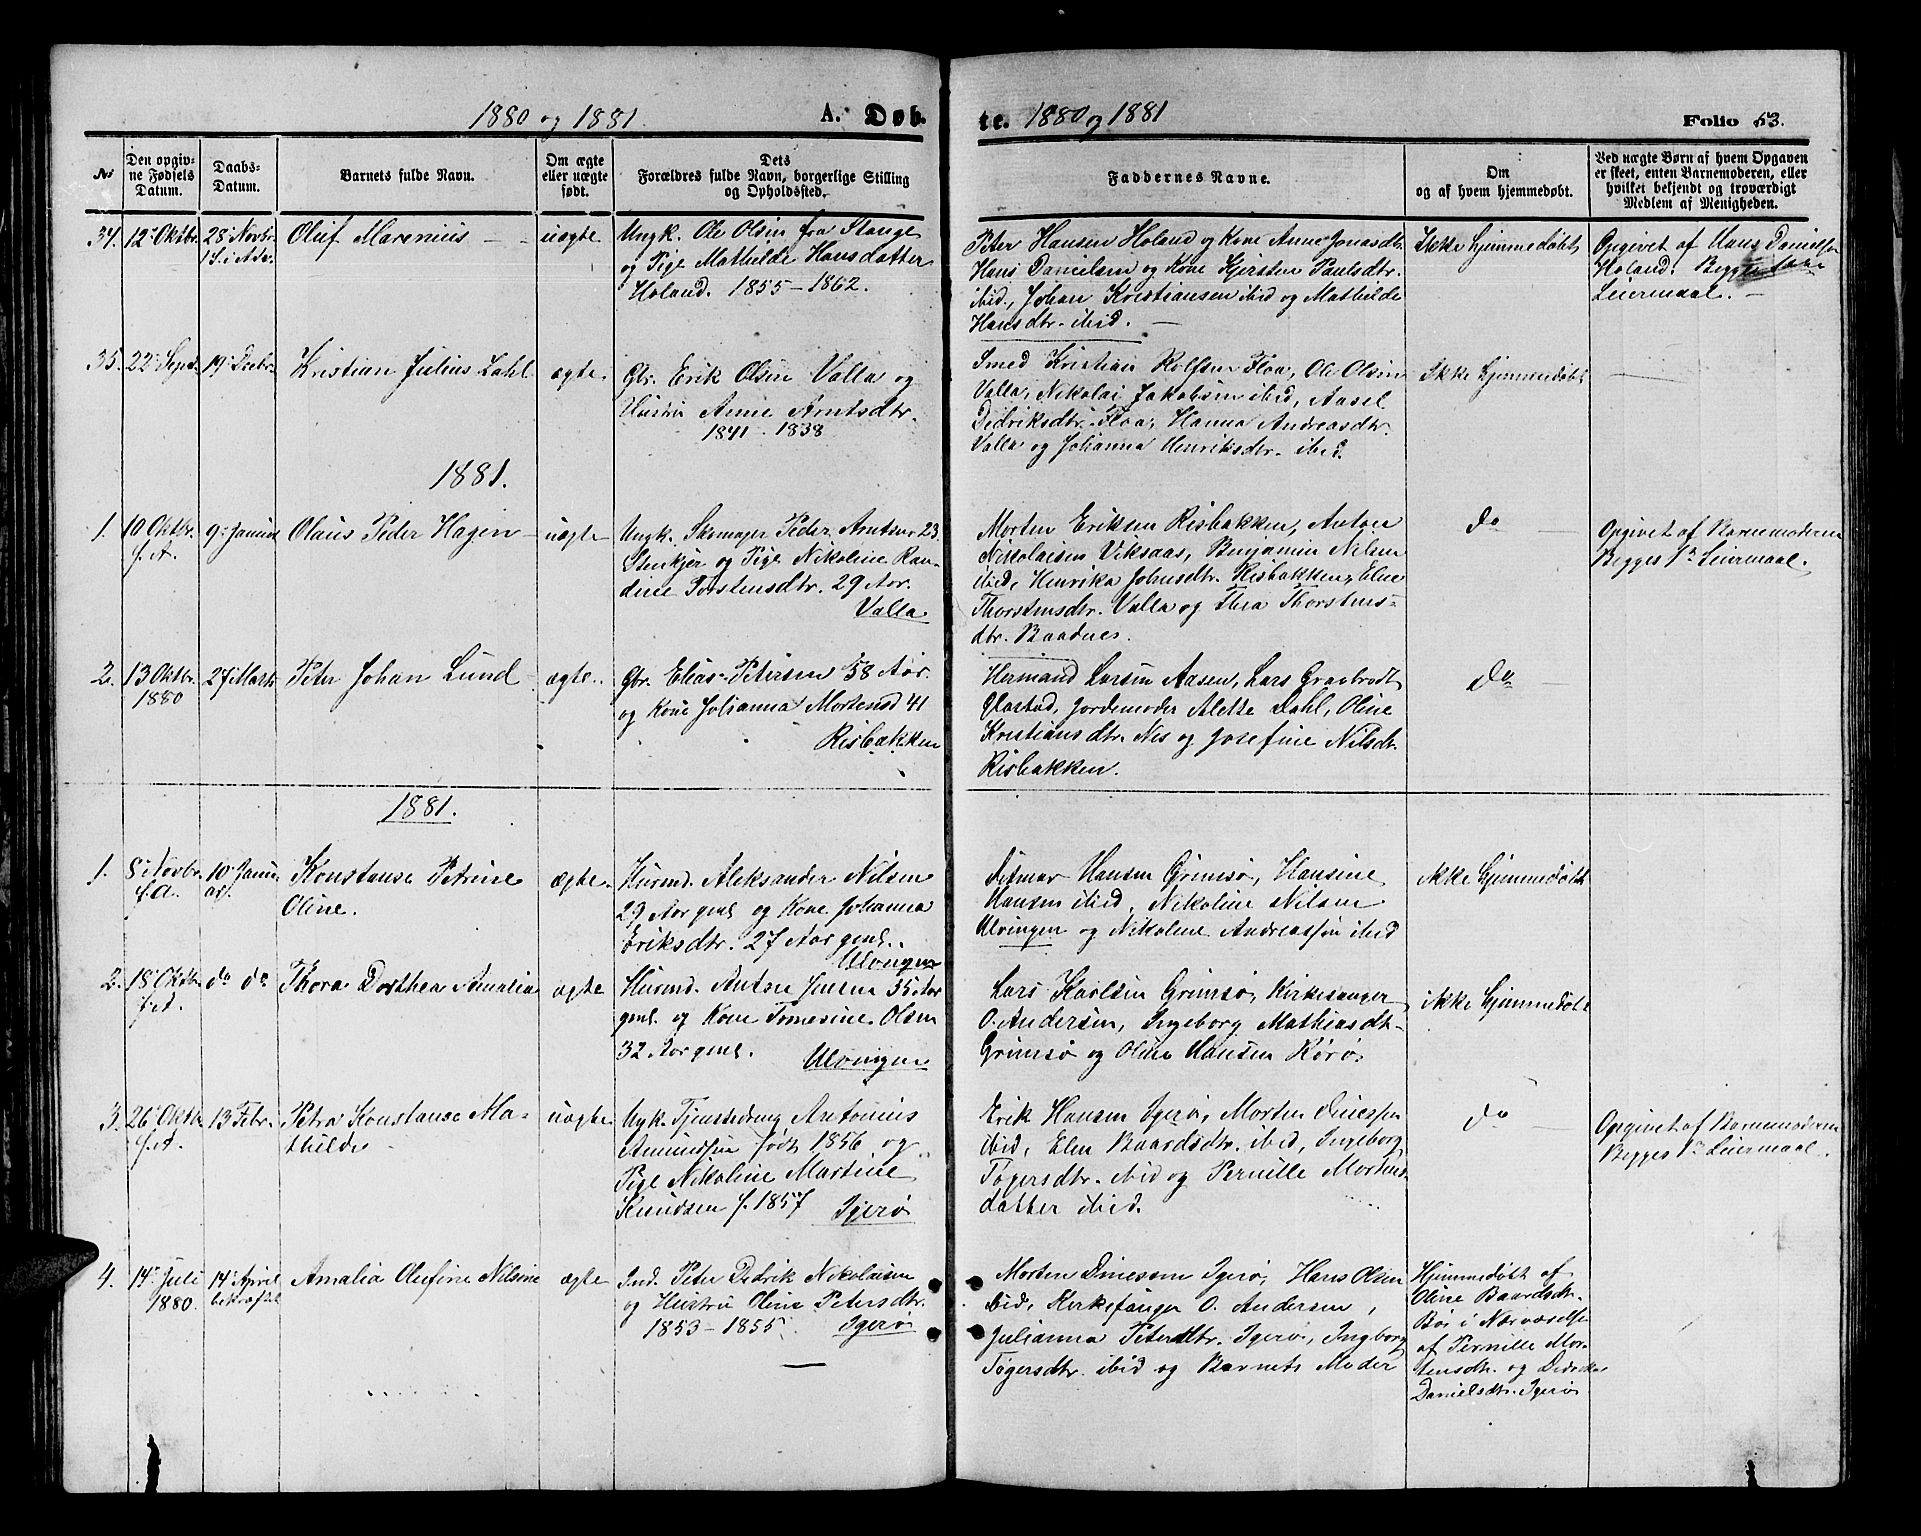 1880 og 1881. A. Døb-
te. 1880 og 1881 Folio 53.
No
Den opgiv-
ne Fødsels
Datum.
Daabs-
Datum.
Barnets fulde Navn.
Om ægte
eller uægte
født.
Dets
Forældres fulde Navn, borgerlige Stilling
og Opholdssted.
Faddernes Navne.
Om
og af hvem hjemmedøbt.
Ved uægte Børn af hvem Opgaven
er skeet, enten Barnemoderen, eller
hvilket bekjendt og troværdigt
Medlem af Menigheden.
34. 12. Oktbr.
28. Novbr.
1 S. i Adv.
Oluf Marenius
uægte
Ungk. Ole Olsen fra Stange
og Pige Mathilde Hansdatter
Holand. 1855 - 1862.
Peter Hansen Holand og Kone Anne Jonasdtr.
Hans Danielsen og Kone Kjersten Paulsdtr.
ibid., Johan Kristiansen ibid og Mathilde
Hansdtr. ibid.
Ikke hjemmedøbt
Opgivet af Hans Danielsen
Holand. Begges
Leiermaal.
35. 22. Septr.
19. Decbr.
Kristian Julius Dahl
ægte
Gbr. Erik Olsen Valla og
Hustru Anne Arntsdtr.
1841 - 1838
Smed Kristian Rolfsen Floa, Ole Olsen
Valla, Nikolai Jakobsen ibid, Aasel
Didriksdtr. Floa, Hanna Andreasdtr.
Valla og Johanna Henriksdtr. ibid.
Ikke hjemmedøbt
1881.
1. 10 Oktbr.
f. A.
9. Januar
Olaus Peder Hagen
uægte
Ungk. Skomager Peder Arntsen 23
Stenkjer og Pige Nikoline Ran-
dine Torstensdtr. 29 Aar.
Valla
Morten Eriksen Risbakken, Anton
Nikolaisen Viksaas, Benjamin Nilsen
ibid, Henrika Johnsdtr. Risbakken, Elne
Thorstensdtr. Valla og Thea Thorstens-
dtr. Baadnes.
do
Opgivet af Barnemoderen
Begges 1e Leiermaal.
2. 13 Oktbr.
1880
27 Marts
Peter Johan Lund
ægte
Gbr. Elias Petersen 58 Aar.
og Kone Johanna Mortensd 41
Risbakken
Hermand Larsen Aasen, Lars Graabrodt
Glastad, Jordemoder Alette Dahl, Oline
Kristiansdtr. Nes og Josefine Nilsdtr.
Risbakken.
do
1881.
1. 8 Novbr.
f. A.
10 Janu-
ar.
Konstanse Petrine
Oline.
ægte
Husmd. Aleksander Nilsen
29 Aar gml og Kone Johanna
Eriksdtr. 27 Aar gml.
Ulvingen
Ditmar Hansen Grimsø, Hansine
Hansen ibid, Nikoline Nilsen
Ulvingen og Nikoline Andreassen ibid
ikke hjemmedøbt
2. 18 Oktbr.
f. A.
do do
Thora Dorthea Amalia
ægte
Husmd. Anton Jensen 35 Aar
gml. og Kone Tomesine Olsen
32 Aar gml.
Ulvingen
Lars Karlsen Grimsø, Kirkesanger
O. Andersen, Ingeborg Mathiasdtr.
Grimsø og Oline Hansen Rørø
ikke hjemmedøbt
3. 26. Oktbr.
f. A.
13 Febr.
Petra Konstanse Ma-
thilde
uægte
Ungk. Tjenestedreng Antonius
Amundsen født 1856 og
Pige Nikoline Martine
Knudsen f. 1857
Igerø
Erik Hansen Igerø, Morten Dinessen
ibid, Elen Baardsdtr. ibid, Ingeborg
Tøgersdtr. ibid og Pernille Mortens-
datter ibid.
do
Opgivet af Barnemoderen
Begges 1e Leiermaal.
4. 14. Juli
1880.
14. April
bekræftet
Amalia Olufine Nilsine
ægte
Ind. Peter Didrik Nikolaisen
og Hustru Oline Petersdtr.
1853 - 1855.
Igerø
Morten Dinessen Igerø, Hans Olsen
ibid, Kirkesanger O. Andersen,
Julianna Petersdtr. Igerø, Ingeborg
Tøgersdtr. ibid og Barnets Moder
Hjemmedøbt af
Oline Baardsdtr.
Bøe i Nærværelse
af Pernille Mor-
tensdtr. og Didrika
Danielsdtr. Igerø